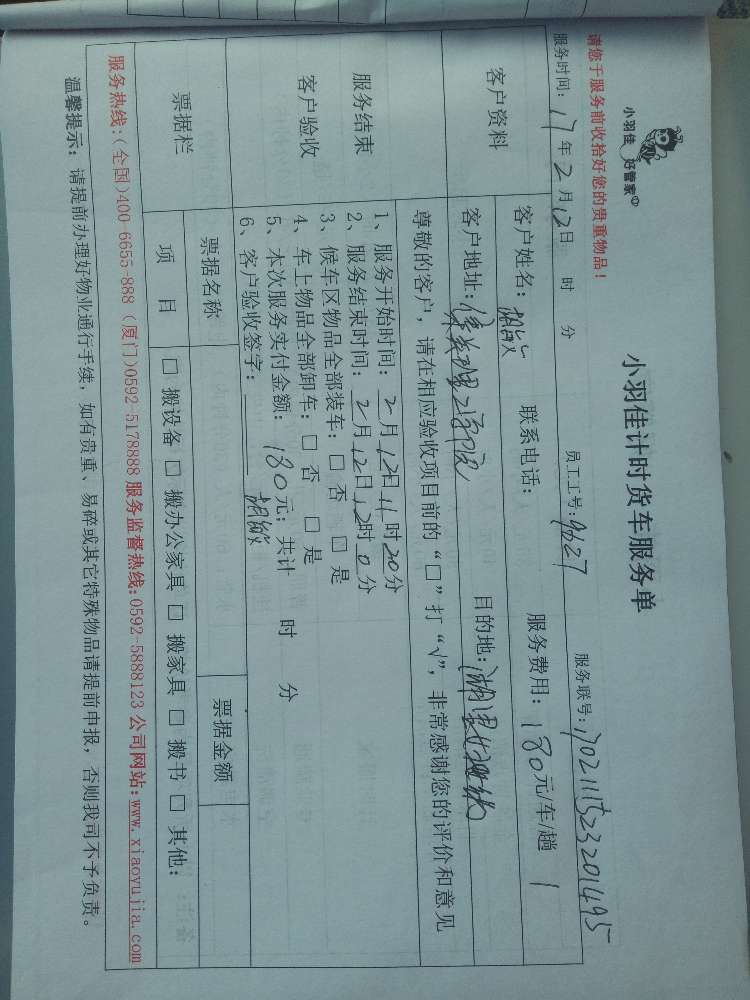 小羽佳 好管家
小羽佳计时货车服务单
请您于服务前收拾好您的贵重物品！
服务时间：17年2月12日 时 分 员工工号：9627 服务联号：1702111523201495
客户资料
客户姓名： 联系电话： 服务费用：180元/车/趟 1
客户地址：集美理工学院 目的地：
服务结束
客户验收
尊敬的客户，请在相应验收项目前的“□”打“√”，非常感谢您的评价和意见
1、服务开始时间：2月12日11时20分
2、服务结束时间：2月12日12时0分
3、候车区物品全部装车：□ 否 □ 是
4、车上物品全部卸车：□ 否 □ 是
5、本次服务实付金额：180元；共计 时 分
6、客户验收签字：
票据栏
票据名称 票据金额
项目 □ 搬设备 □ 搬办公家具 □ 搬家具 □ 搬书 □ 其他：
服务热线：(全国)400 6655-888 (厦门)0592 5178888 服务监督热线：0592-5888123 公司网站：www.xiaoyujia.com
温馨提示：请提前办理好物业通行手续，如有贵重、易碎或其它特殊物品请提前申报，否则我司不予负责。